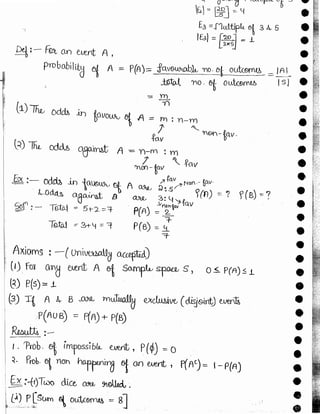 |E₂| = [20/5] = 4
E₃ = Multiple of 3 & 5
|E₃| = [20/3×5] = 1
Def :- For an event A,
Probability of A = P(A) = favourable no. of outcomes / total no. of outcomes = |A| / |S|
= m/n
(1) The odds in favour of A = m : n-m
fav non-fav.
(2) The odds against A = n-m : m
non-fav fav
Ex :- odds in favour of A are 2:5 P(A) = ? P(B) = ?
fav Non-fav
Odds against B are 3:4
nonfav fav
Solⁿ :- Total = 5+2=7 P(A) = 2/7
Total = 3+4=7 P(B) = 4/7
Axioms :- (Universally accepted)
(1) For any event A of Sample space S, 0 ≤ P(A) ≤ 1
(2) P(S) = 1
(3) If A & B are mutually exclusive (disjoint) events
P(A∪B) = P(A) + P(B)
Results :-
1. Prob. of impossible event, P(ϕ) = 0
2. Prob of non happening of an event, P(Aᶜ) = 1 - P(A)
Ex :-(1) Two dice are rolled.
(1) P[Sum of outcomes = 8]